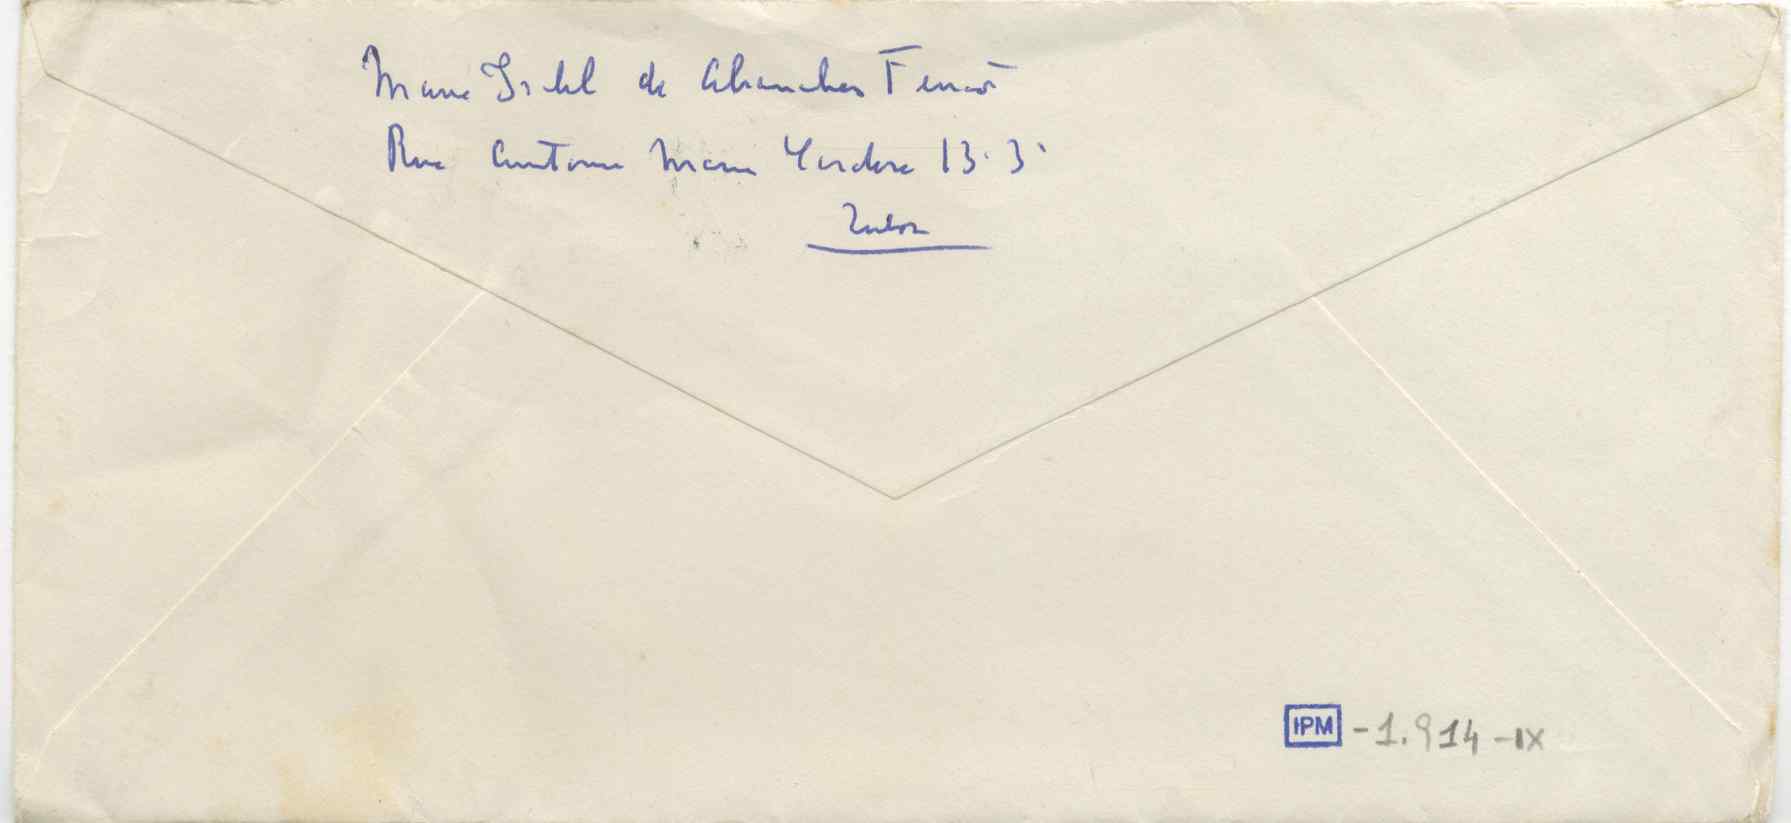 Maria Isabel de Abranches Ferrão
Rua Antonio Maria Cardoso 13-3º
Lisboa
IPM -1.914-IX